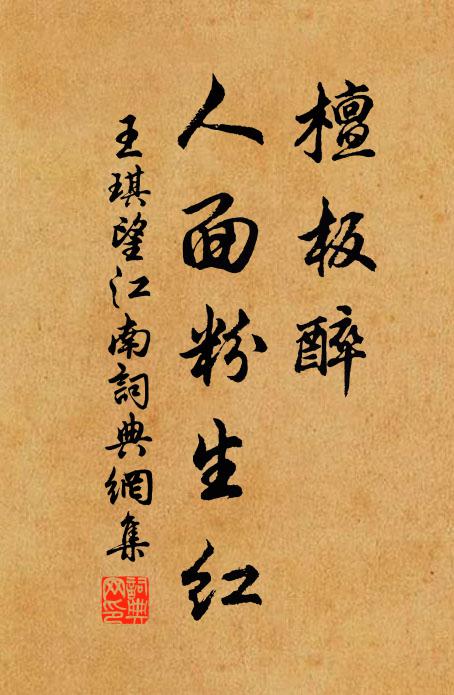 檀板醉
人面粉生紅
王琪望江南詞典網集
詞典網印